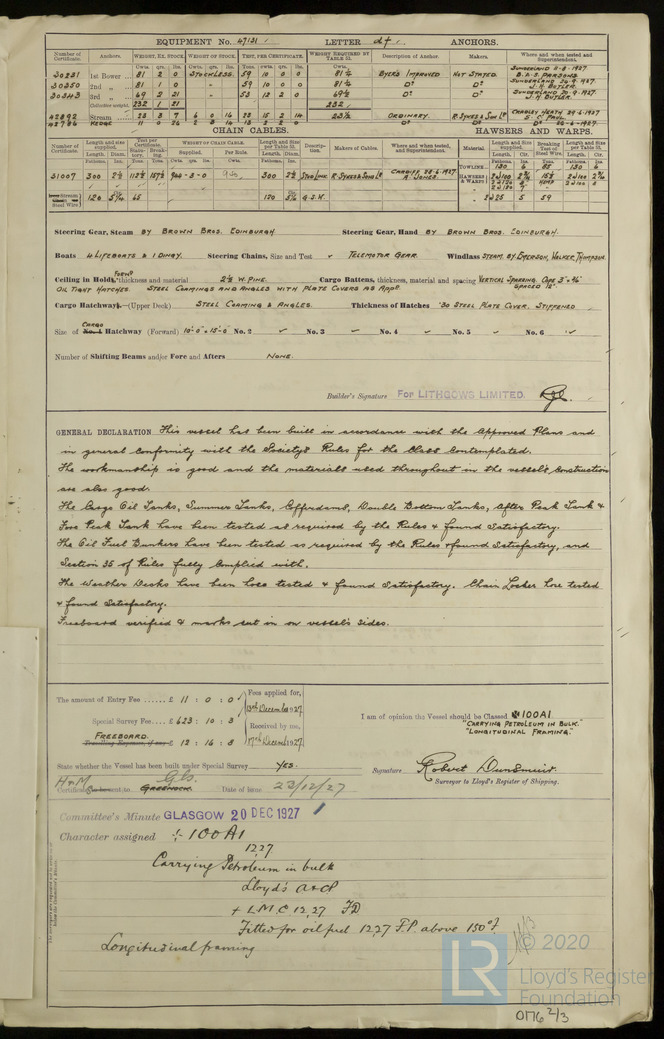 EQUIPMENT No. 47131 LETTER d† ANCHORS.
Number of Certificate. Anchors. WEIGHT, EX. STOCK. WEIGHT OF STOCK. TEST, PER CERTIFICATE. WEIGHT REQUIRED BY TABLE 31. Description of Anchor. Makers. Where and when tested and Superintendent.
Cwts. qrs. lbs. Cwts. qrs. lbs. Tons. cwts. qrs. lbs. Cwts.
30231 1st Bower 81 2 0 STOCKLESS. 59 10 0 0 81½ BYERS IMPROVED NOT STATED. SUNDERLAND
30250 2nd „ 81 1 0 „ 59 10 0 0 81½ Do Do
3rd „ 69 2 21 „ 53 12 2 0 69½ Do Do J. H. BUTLER.
Collective weight. 232 1 21 232
42892 Stream 23 3 7 6 0 14 23 15 2 14 23½ ORDINARY. R. SYKES & SON LD CRADLEY HEATH
KEDGE Do Do
CHAIN CABLES. HAWSERS AND WARPS.
Number of Certificate. Length and size supplied. Test per Certificate. WEIGHT OF CHAIN CABLE. Length and size per Table 31. Description. Makers of Cables. Where and when tested, and Superintendent. Material Length and size supplied. Breaking Test of Steel Wire. Length and size per Table 31.
31007 300 2½ 904-3-0 300 2½ STUD LINK R. SYKES & SONS LD CARDIFF A. JONES.
TOWLINE 130 6 85 130 6
HAWSERS & WARPS
Stream Steel Wire 120 65 120 G.S.W. 2 @ 25 5 59
Steering Gear, Steam BY BROWN BROS. EDINBURGH Steering Gear, Hand BY BROWN BROS. EDINBURGH.
Boats 4 LIFEBOATS & 1 DINGY. Steering Chains, Size and Test ✓ TELEMOTOR GEAR. Windlass STEAM. BY EMERSON, WALKER, THOMPSON.
Ceiling in Holds, FORWD thickness and material 2½ W. PINE. Cargo Battens, thickness, material and spacing VERTICAL SPARRING.
OIL TIGHT HATCHES. STEEL COAMINGS AND ANGLES WITH PLATE COVERS AS APPD.
Cargo Hatchways.—(Upper Deck) STEEL COAMING & ANGLES. Thickness of Hatches ·30 STEEL PLATE COVER. STIFFENED
Size of CARGO No. 1 Hatchway (Forward) 10'-0" x 15'-0" No. 2 ✓ No. 3 ✓ No. 4 ✓ No. 5 ✓ No. 6 ✓
Number of Shifting Beams and/or Fore and Afters NONE.
Builder's Signature FOR LITHGOWS LIMITED.
GENERAL DECLARATION. This vessel has been built in accordance with the Approved Plans and
in general conformity with the Society's Rules for the Class Contemplated.
The workmanship is good and the materials used throughout in the vessel's construction
are also good.
The Cargo Oil Tanks, Summer Tanks, Cofferdams, Double Bottom Tanks, After Peak Tank &
Fore Peak Tank have been tested as required by the Rules & found Satisfactory.
The Oil Fuel Bunkers have been tested as required by the Rules & found Satisfactory, and
Section 35 of Rules fully complied with.
The Weather Decks have been hose tested & found Satisfactory. Chain Locker hose tested
& found Satisfactory.
Freeboard verified & marks cut in on vessel's sides.
The amount of Entry Fee ...... £ 11 : 0 : 0 Fees applied for,
13th December 1927
Special Survey Fee .... £ 623 : 10 : 3 Received by me,
FREEBOARD. Travelling Expenses, if any £ 12 : 16 : 8 17th December 1927.
I am of opinion the Vessel should be Classed ✠ 100A1
"CARRYING PETROLEUM IN BULK."
"LONGITUDINAL FRAMING."
State whether the Vessel has been built under Special Survey YES.
Signature Robert Dunsmuir
Surveyor to Lloyd's Register of Shipping.
H+M Gls.
Certificate to be sent to GREENOCK Date of issue 23/12/27
Committee's Minute GLASGOW 20 DEC 1927
Character assigned ✠ 100A1
12.27
Carrying Petroleum in bulk
Lloyd's A&CP
+ LMC 12.27 FD
Fitted for oil fuel 12.27 F.P. above 150°F.
Longitudinal framing
© 2020
LR
Lloyd's Register
Foundation
0176 2/3